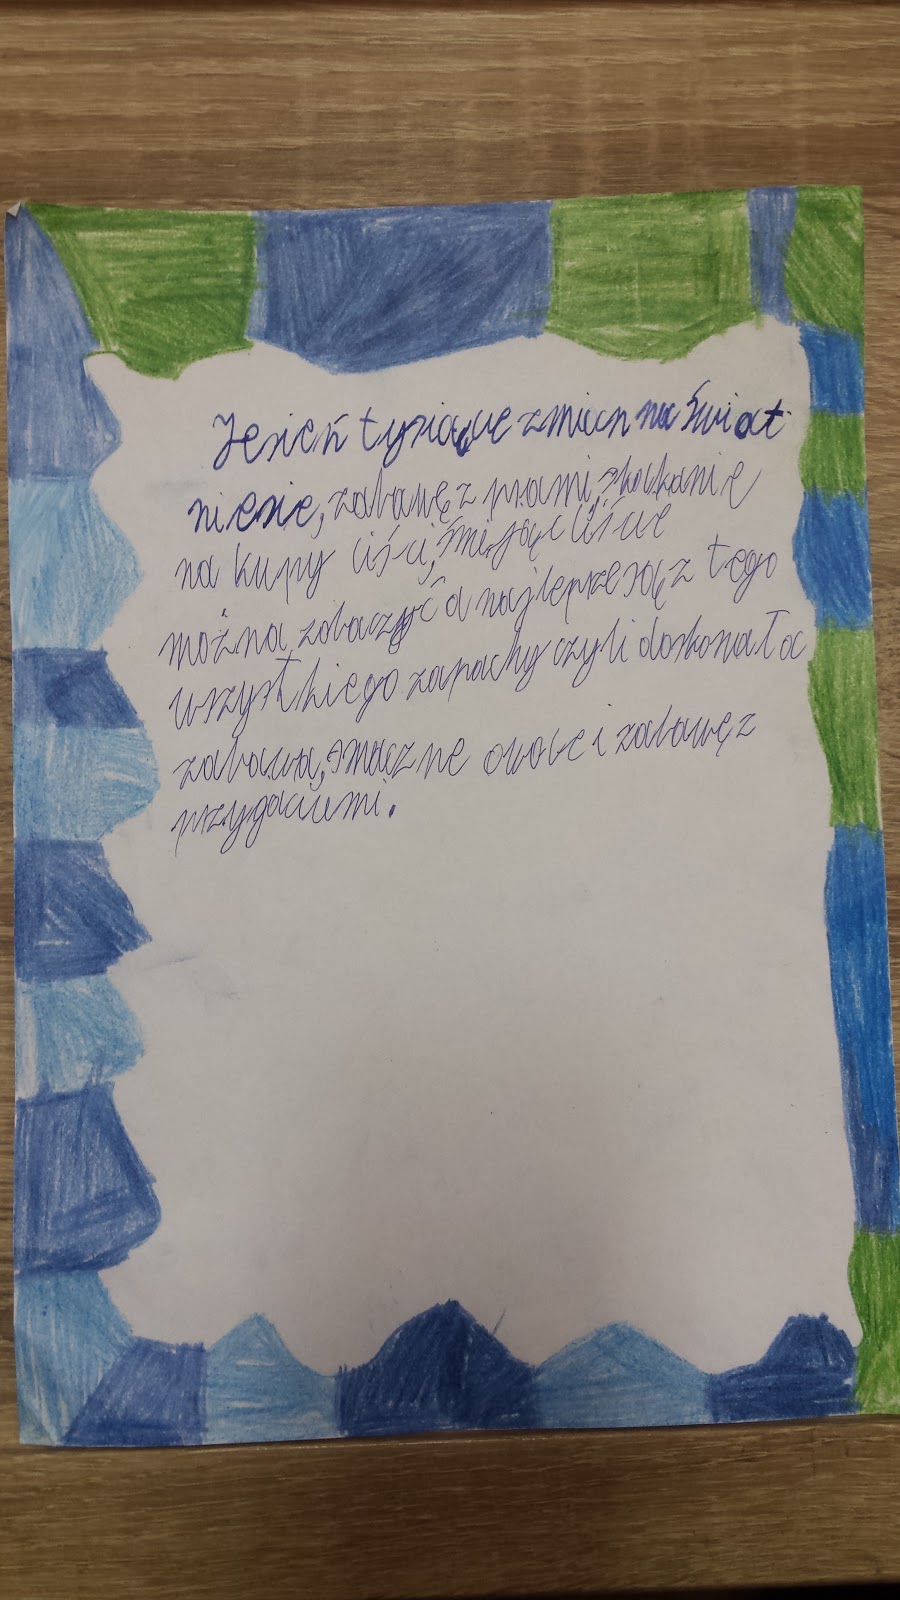 Jesień tysiące zmian na świat
niesie, zabawę z psami, skakanie
na kupy liści, śmiejąc liście
można zobaczyć a najlepsze są z tego
wszystkiego zapachy czyli doskonała
zabawa, smaczne owoce i zabawę z
przyjaciemi.